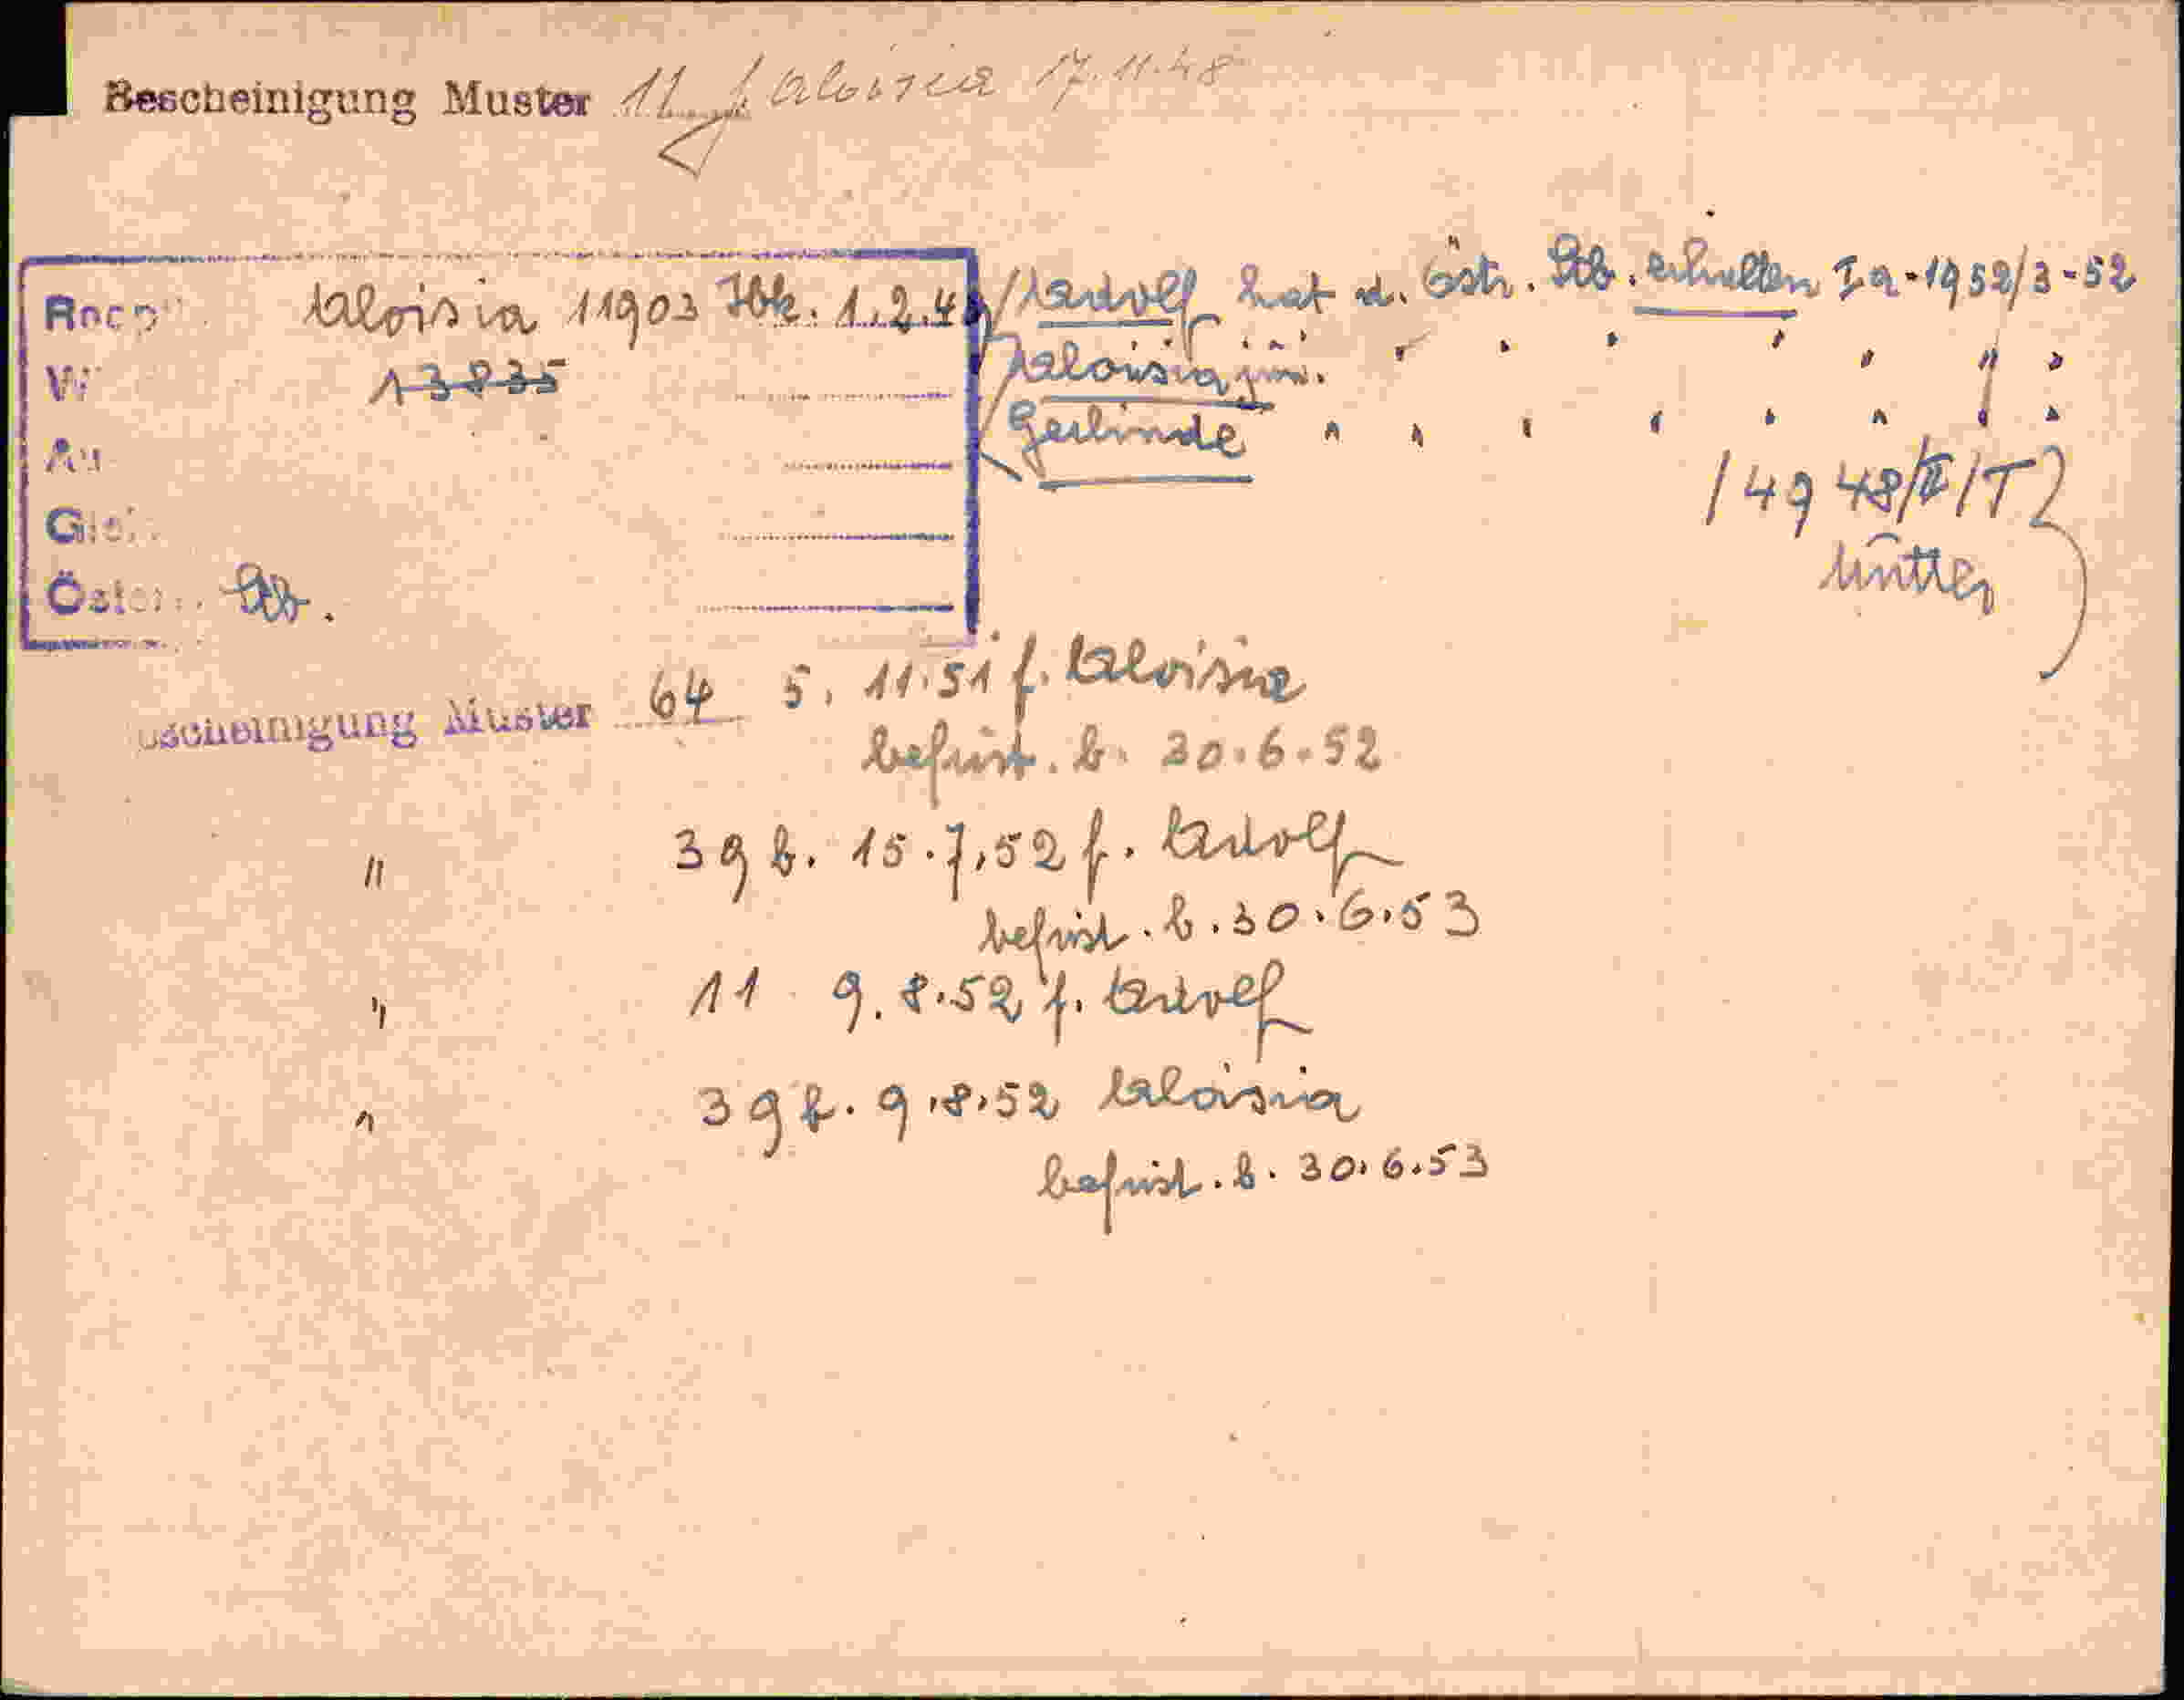 Bescheinigung Muster 11 f. Aloisia 17.11.48
Aloisia 11903 Ibk. 1.2.4
13835
Öster. Stb.
Adolf hat d. östr. Stb. erhalten Ia-1952/3-52
Aloisia jun. " " " " " " "
Gerlinde " " " " " " " "
1948/II/T
Mutter
Bescheinigung Muster 64 5. 11.51 f. Aloisia
befrist. b. 30.6.52
" 39 b. 15.7.52 f. Adolf
befrist. b. 30.6.53
" 11 9.8.52 f. Adolf
" 39 b. 9.8.52 Aloisia
befrist. b. 30.6.53